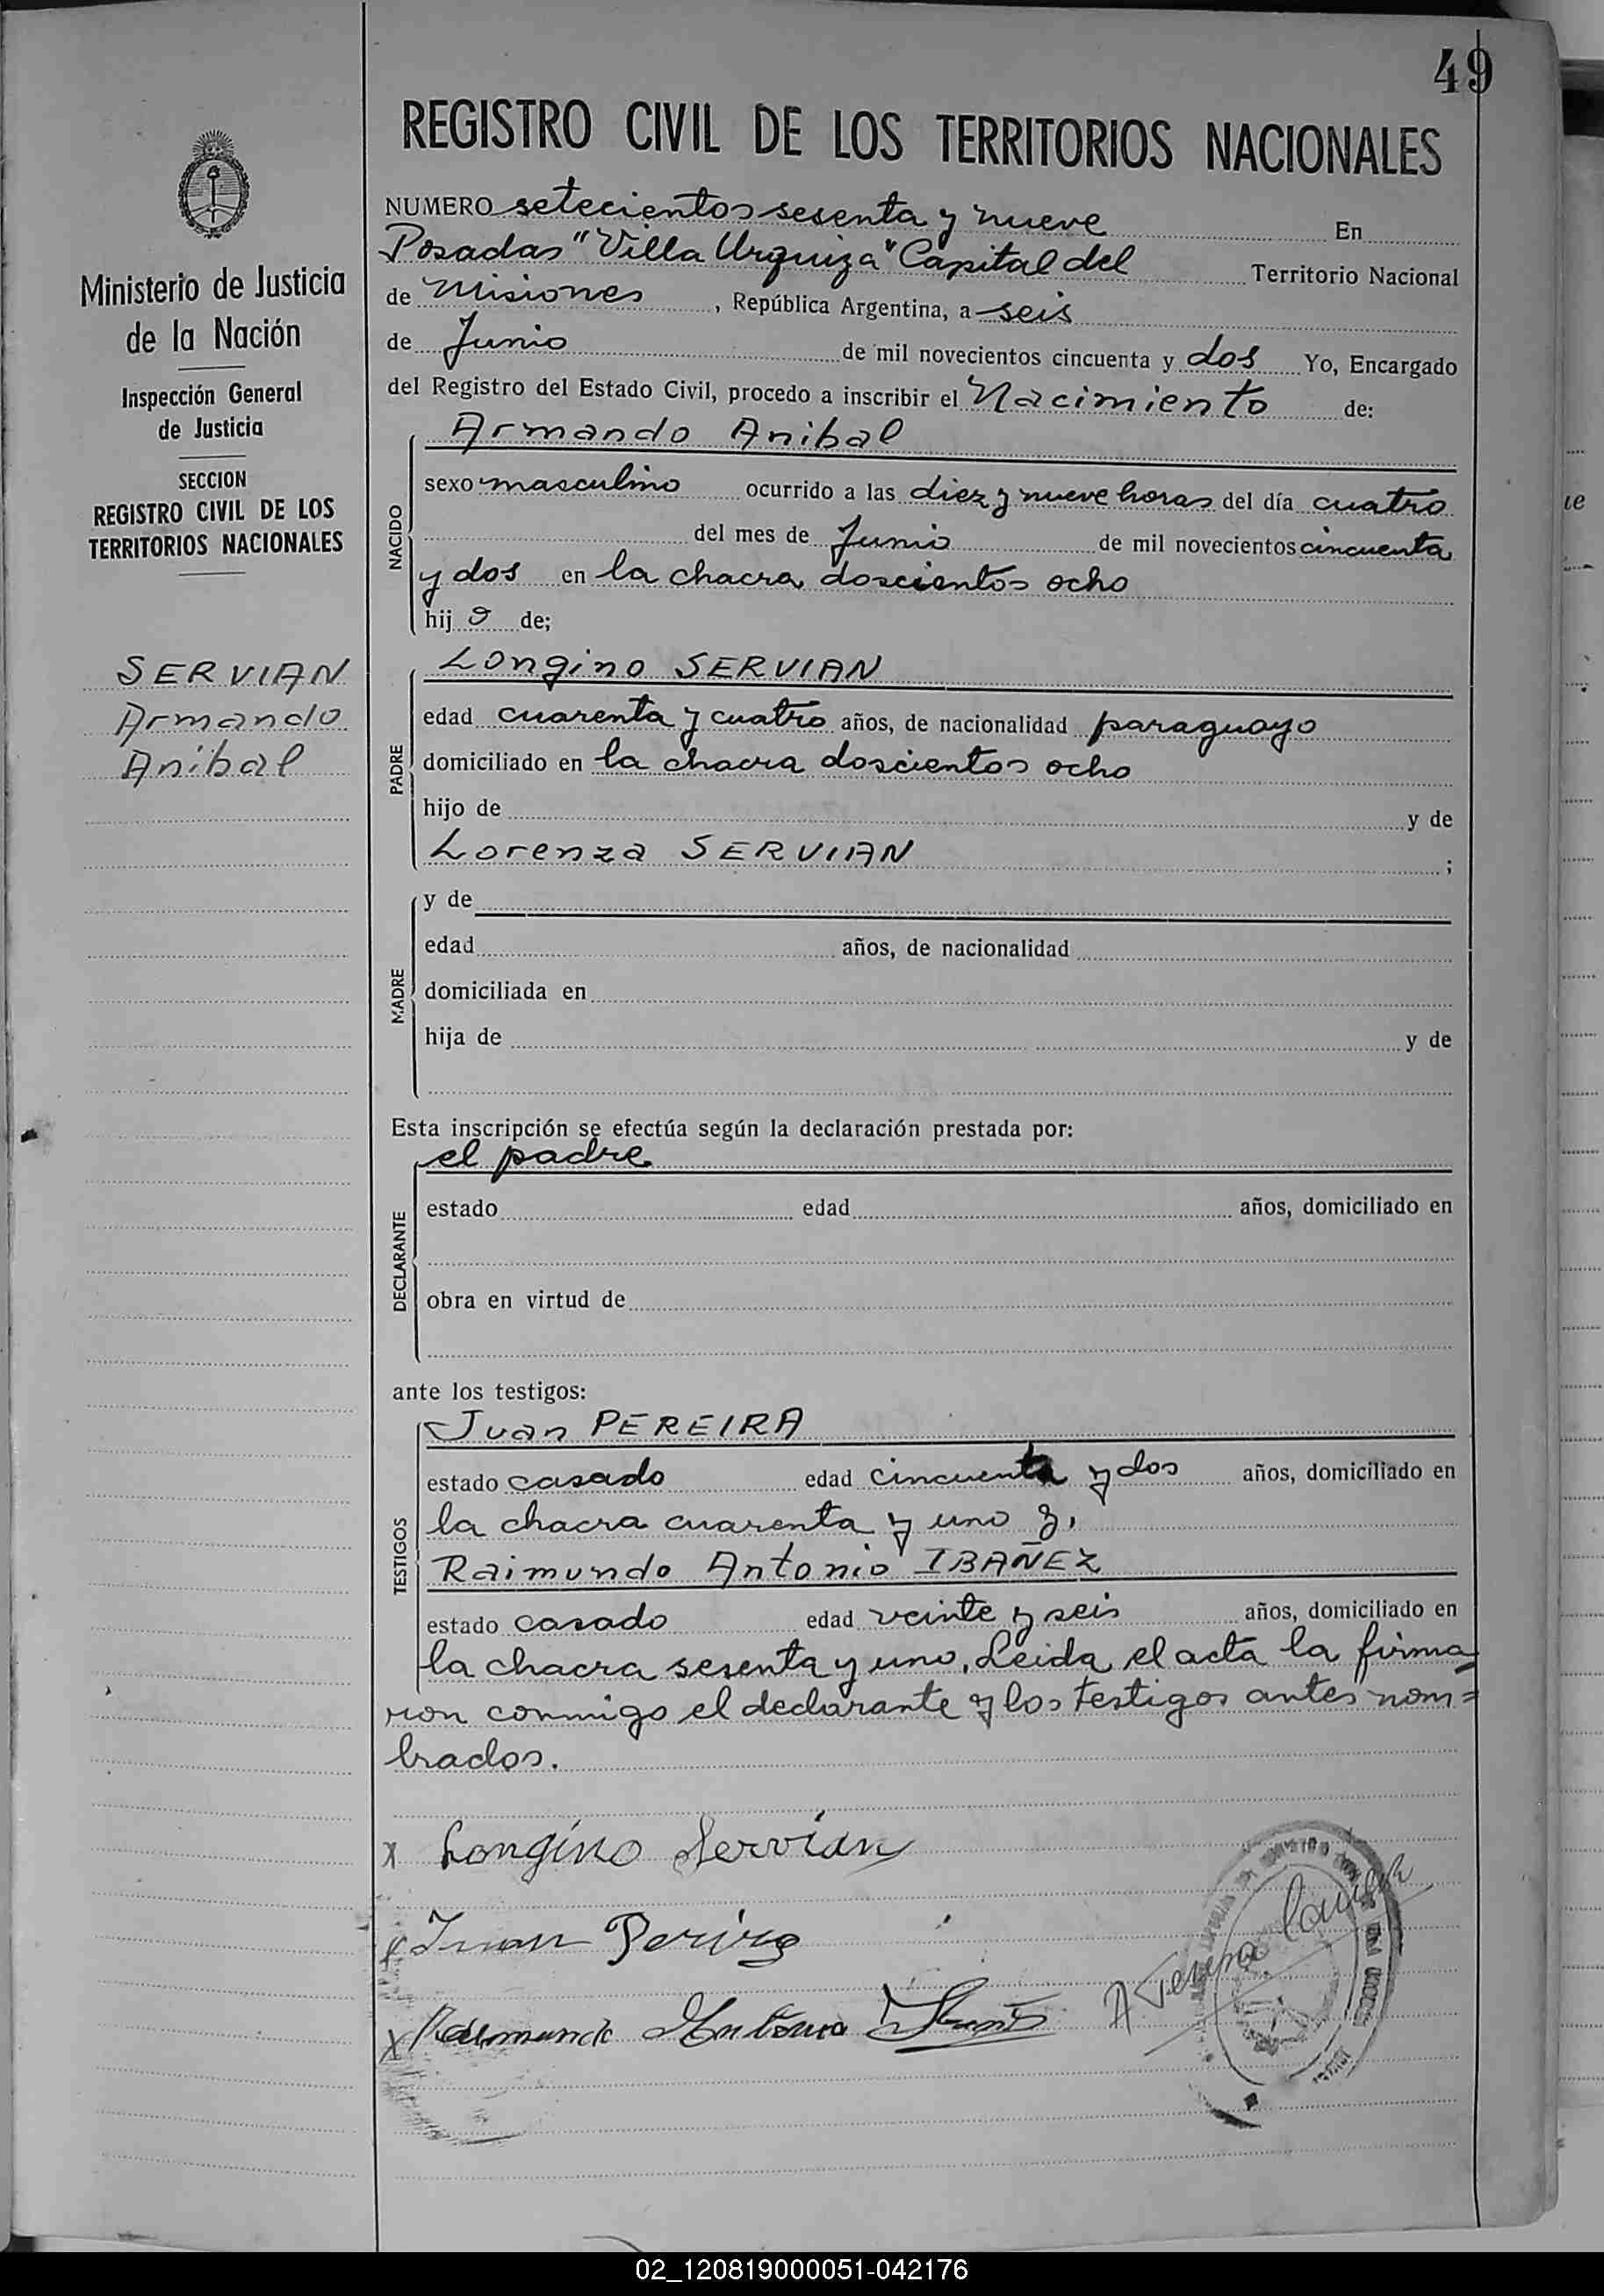 49
REGISTRO CIVIL DE LOS TERRITORIOS NACIONALES
Ministerio de Justicia
de la Nación
Inspección General
de Justicia
SECCION
REGISTRO CIVIL DE LOS
TERRITORIOS NACIONALES
SERVIAN
Armando
Anibal
NUMERO setecientos sesenta y nueve En
Posadas "Villa Urquiza" Capital del Territorio Nacional
de Misiones, República Argentina, a seis
de Junio de mil novecientos cincuenta y dos Yo, Encargado
del Registro del Estado Civil, procedo a inscribir el Nacimiento de:
NACIDO
Armando Anibal
sexo masculino ocurrido a las diez y nueve horas del día cuatro
del mes de Junio de mil novecientos cincuenta
y dos en la chacra doscientos ocho
hij o de;
PADRE
Longino SERVIAN
edad cuarenta y cuatro años, de nacionalidad paraguayo
domiciliado en la chacra doscientos ocho
hijo de y de
Lorenza SERVIAN ;
MADRE
y de
edad años, de nacionalidad
domiciliada en
hija de y de
Esta inscripción se efectúa según la declaración prestada por:
DECLARANTE
el padre
estado edad años, domiciliado en
obra en virtud de
ante los testigos:
TESTIGOS
Juan PEREIRA
estado casado edad cincuenta y dos años, domiciliado en
la chacra cuarenta y uno y,
Raimundo Antonio IBAÑEZ
estado casado edad veinte y seis años, domiciliado en
la chacra sesenta y uno. Leida el acta la firma=
ron conmigo el declarante y los testigos antes nom=
brados.
x Longino Servian
x Juan Perira
x Raimundo Antonio
02_120819000051-042176